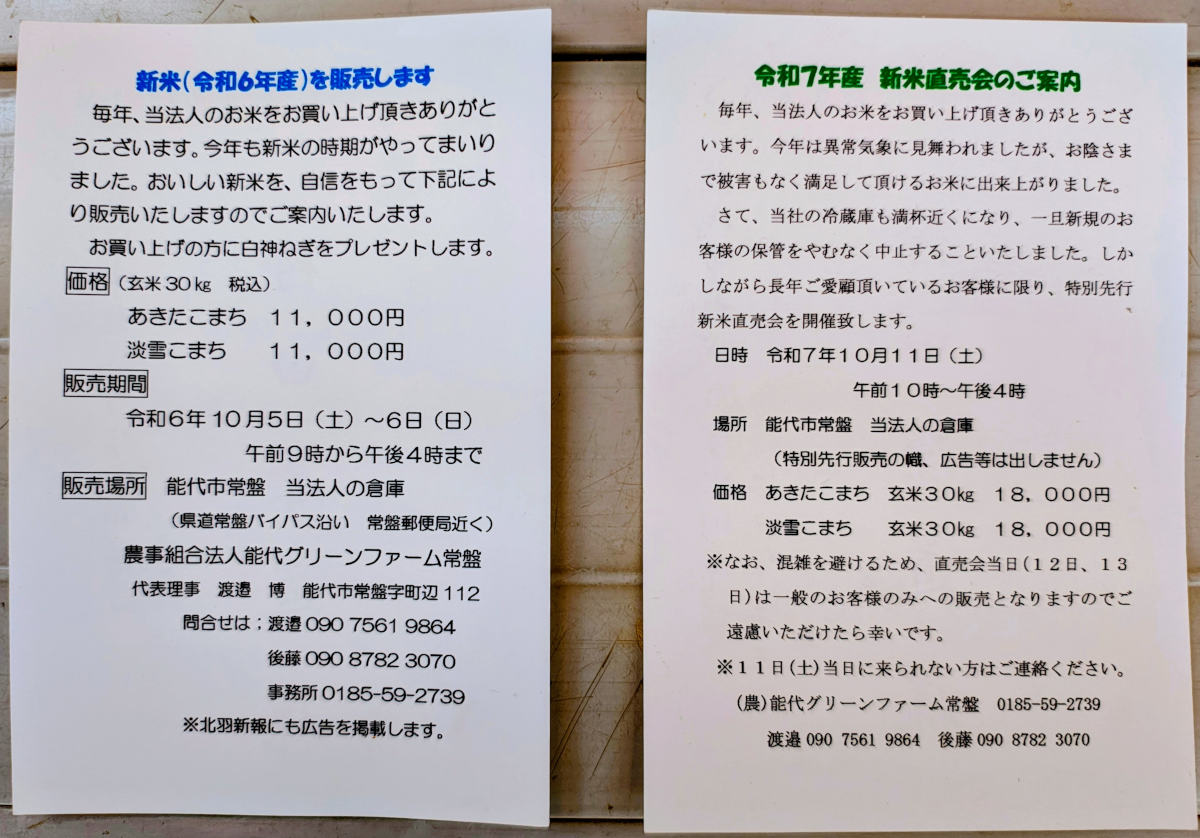 新米(令和6年産)を販売します
毎年、当法人のお米をお買い上げ頂きありがと
うございます。今年も新米の時期がやってまいり
ました。おいしい新米を、自信をもって下記によ
り販売いたしますのでご案内いたします。
お買い上げの方に白神ねぎをプレゼントします。
価格（玄米30㎏　税込）
あきたこまち　１１，０００円
淡雪こまち　　１１，０００円
販売期間
令和６年１０月５日（土）～６日（日）
午前９時から午後４時まで
販売場所　能代市常盤　当法人の倉庫
（県道常盤バイパス沿い　常盤郵便局近く）
農事組合法人能代グリーンファーム常盤
代表理事　渡邉　博　能代市常盤字町辺112
問合せは；渡邉090 7561 9864
後藤090 8782 3070
事務所0185-59-2739
※北羽新報にも広告を掲載します。
令和7年産　新米直売会のご案内
毎年、当法人のお米をお買い上げ頂きありがとうござ
います。今年は異常気象に見舞われましたが、お陰さま
で被害もなく満足して頂けるお米に出来上がりました。
さて、当社の冷蔵庫も満杯近くになり、一旦新規のお
客様の保管をやむなく中止することいたしました。しか
しながら長年ご愛顧頂いているお客様に限り、特別先行
新米直売会を開催致します。
日時　令和７年１０月１１日（土）
午前１０時～午後４時
場所　能代市常盤　当法人の倉庫
（特別先行販売の幟、広告等は出しません）
価格　あきたこまち　玄米３０㎏　１８，０００円
淡雪こまち　　玄米３０㎏　１８，０００円
※なお、混雑を避けるため、直売会当日(１２日、１３
日)は一般のお客様のみへの販売となりますのでご
遠慮いただけたら幸いです。
※１１日(土)当日に来られない方はご連絡ください。
(農)能代グリーンファーム常盤　0185-59-2739
渡邉090 7561 9864　後藤090 8782 3070